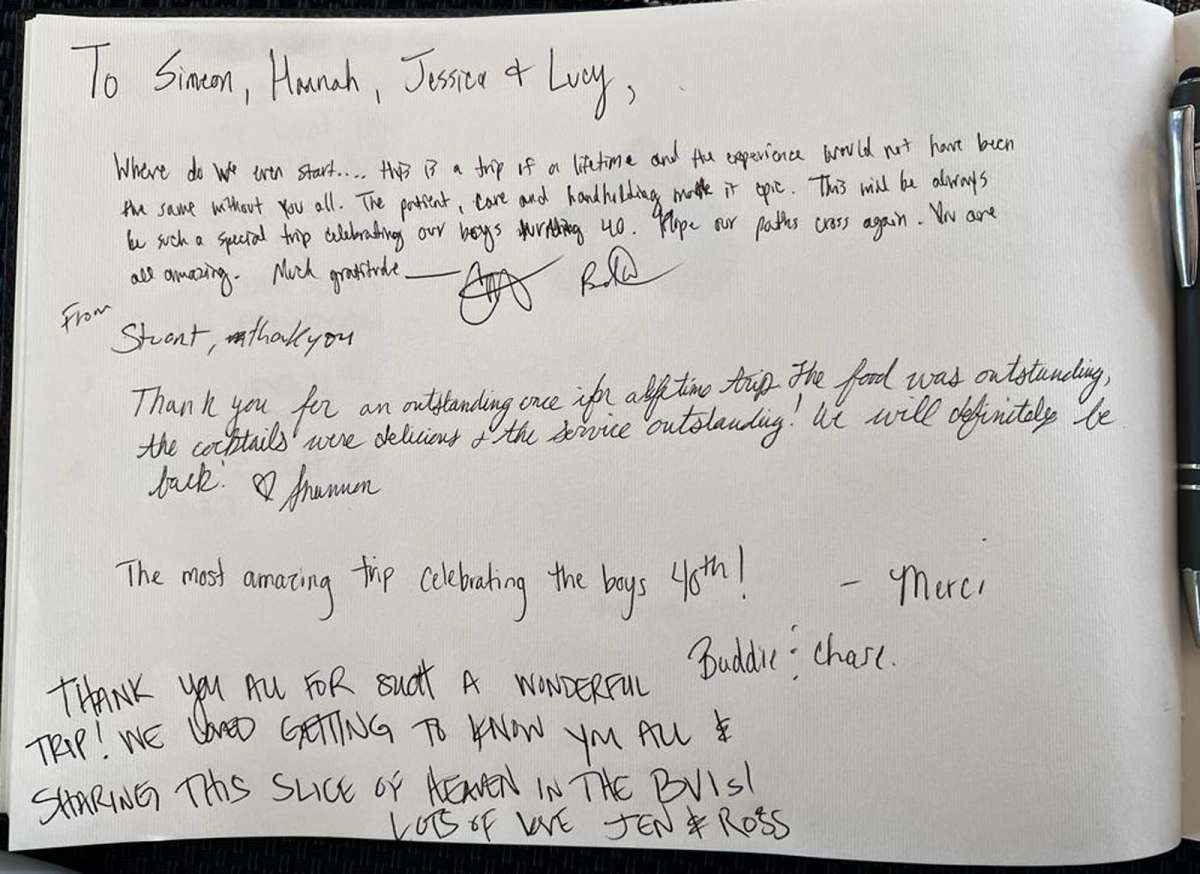 To Simeon, Hannah, Jessica & Lucy,
Where do we even start.... this is a trip of a lifetime and the experience would not have been
the same without you all. The patient, care and handholding made it epic. This will be always
be such a special trip celebrating our boys turning 40. Hope our paths cross again. You are
all amazing. Much gratitude
From
Stuart, thankyou
Thank you for an outstanding once ifn a lifetime trip. The food was outstanding,
the cocktails were delicious & the service outstanding! We will definitely be
back! ♡ Shannon
The most amazing trip celebrating the boys 40th! - Merci
Buddie & Chase.
THANK YOU ALL FOR SUCH A WONDERFUL
TRIP! WE LOVED GETTING TO KNOW YOU ALL &
SHARING THIS SLICE OF HEAVEN IN THE BVIs!
LOTS OF LOVE JEN & ROSS